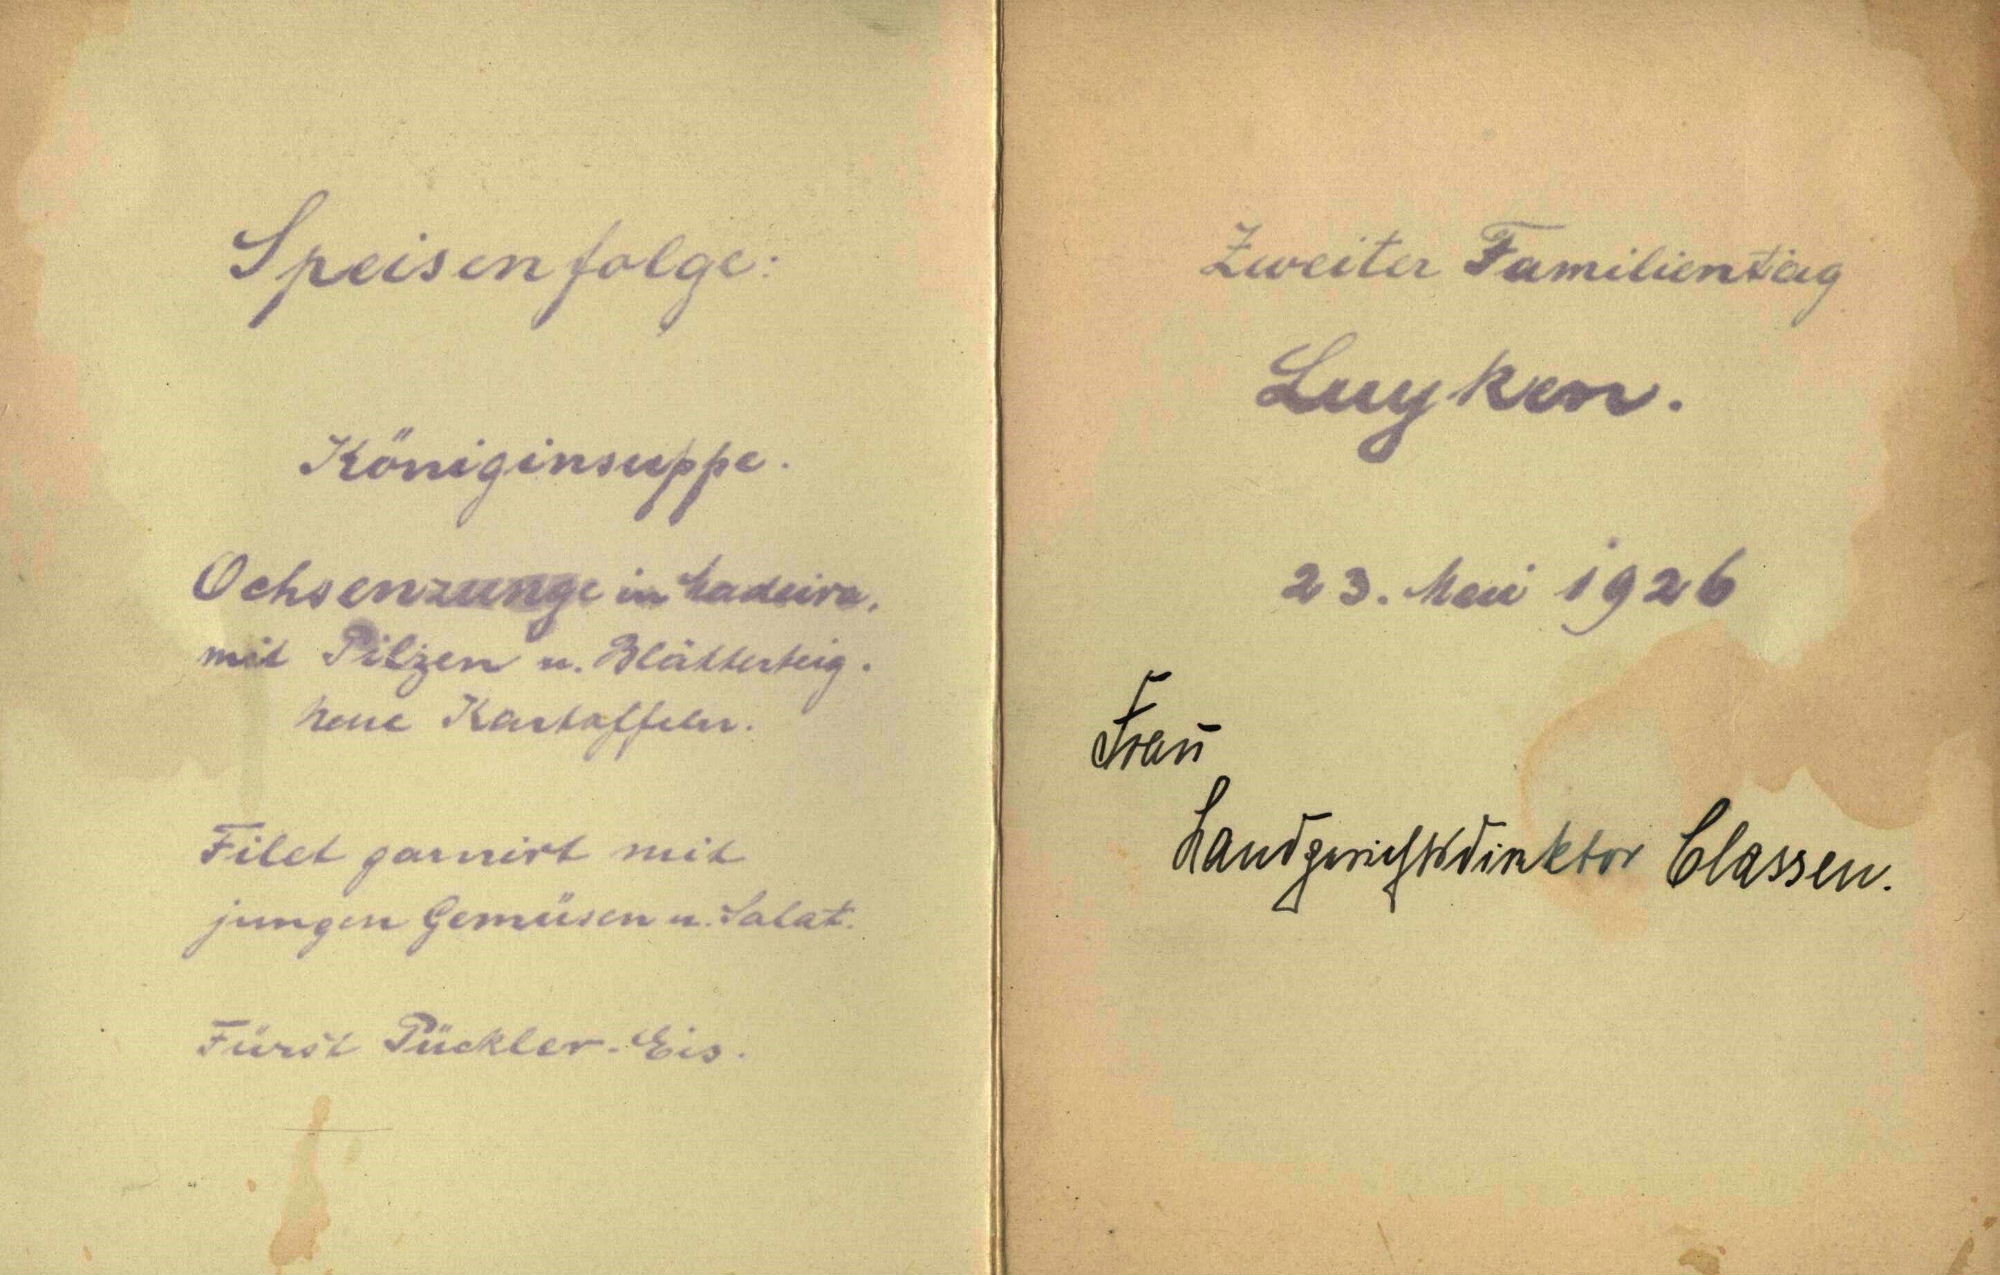 Speisenfolge:
Königinsuppe.
Ochsenzunge in Madeira,
mit Pilzen u. Blätterteig.
neue Kartoffeln.
Filet garnirt mit
jungen Gemüsen u. Salat.
Fürst Pückler-Eis.
Zweiter Familientag
Luyken.
23. Mai 1926
Frau
Landgerichtsdirektor Classen.